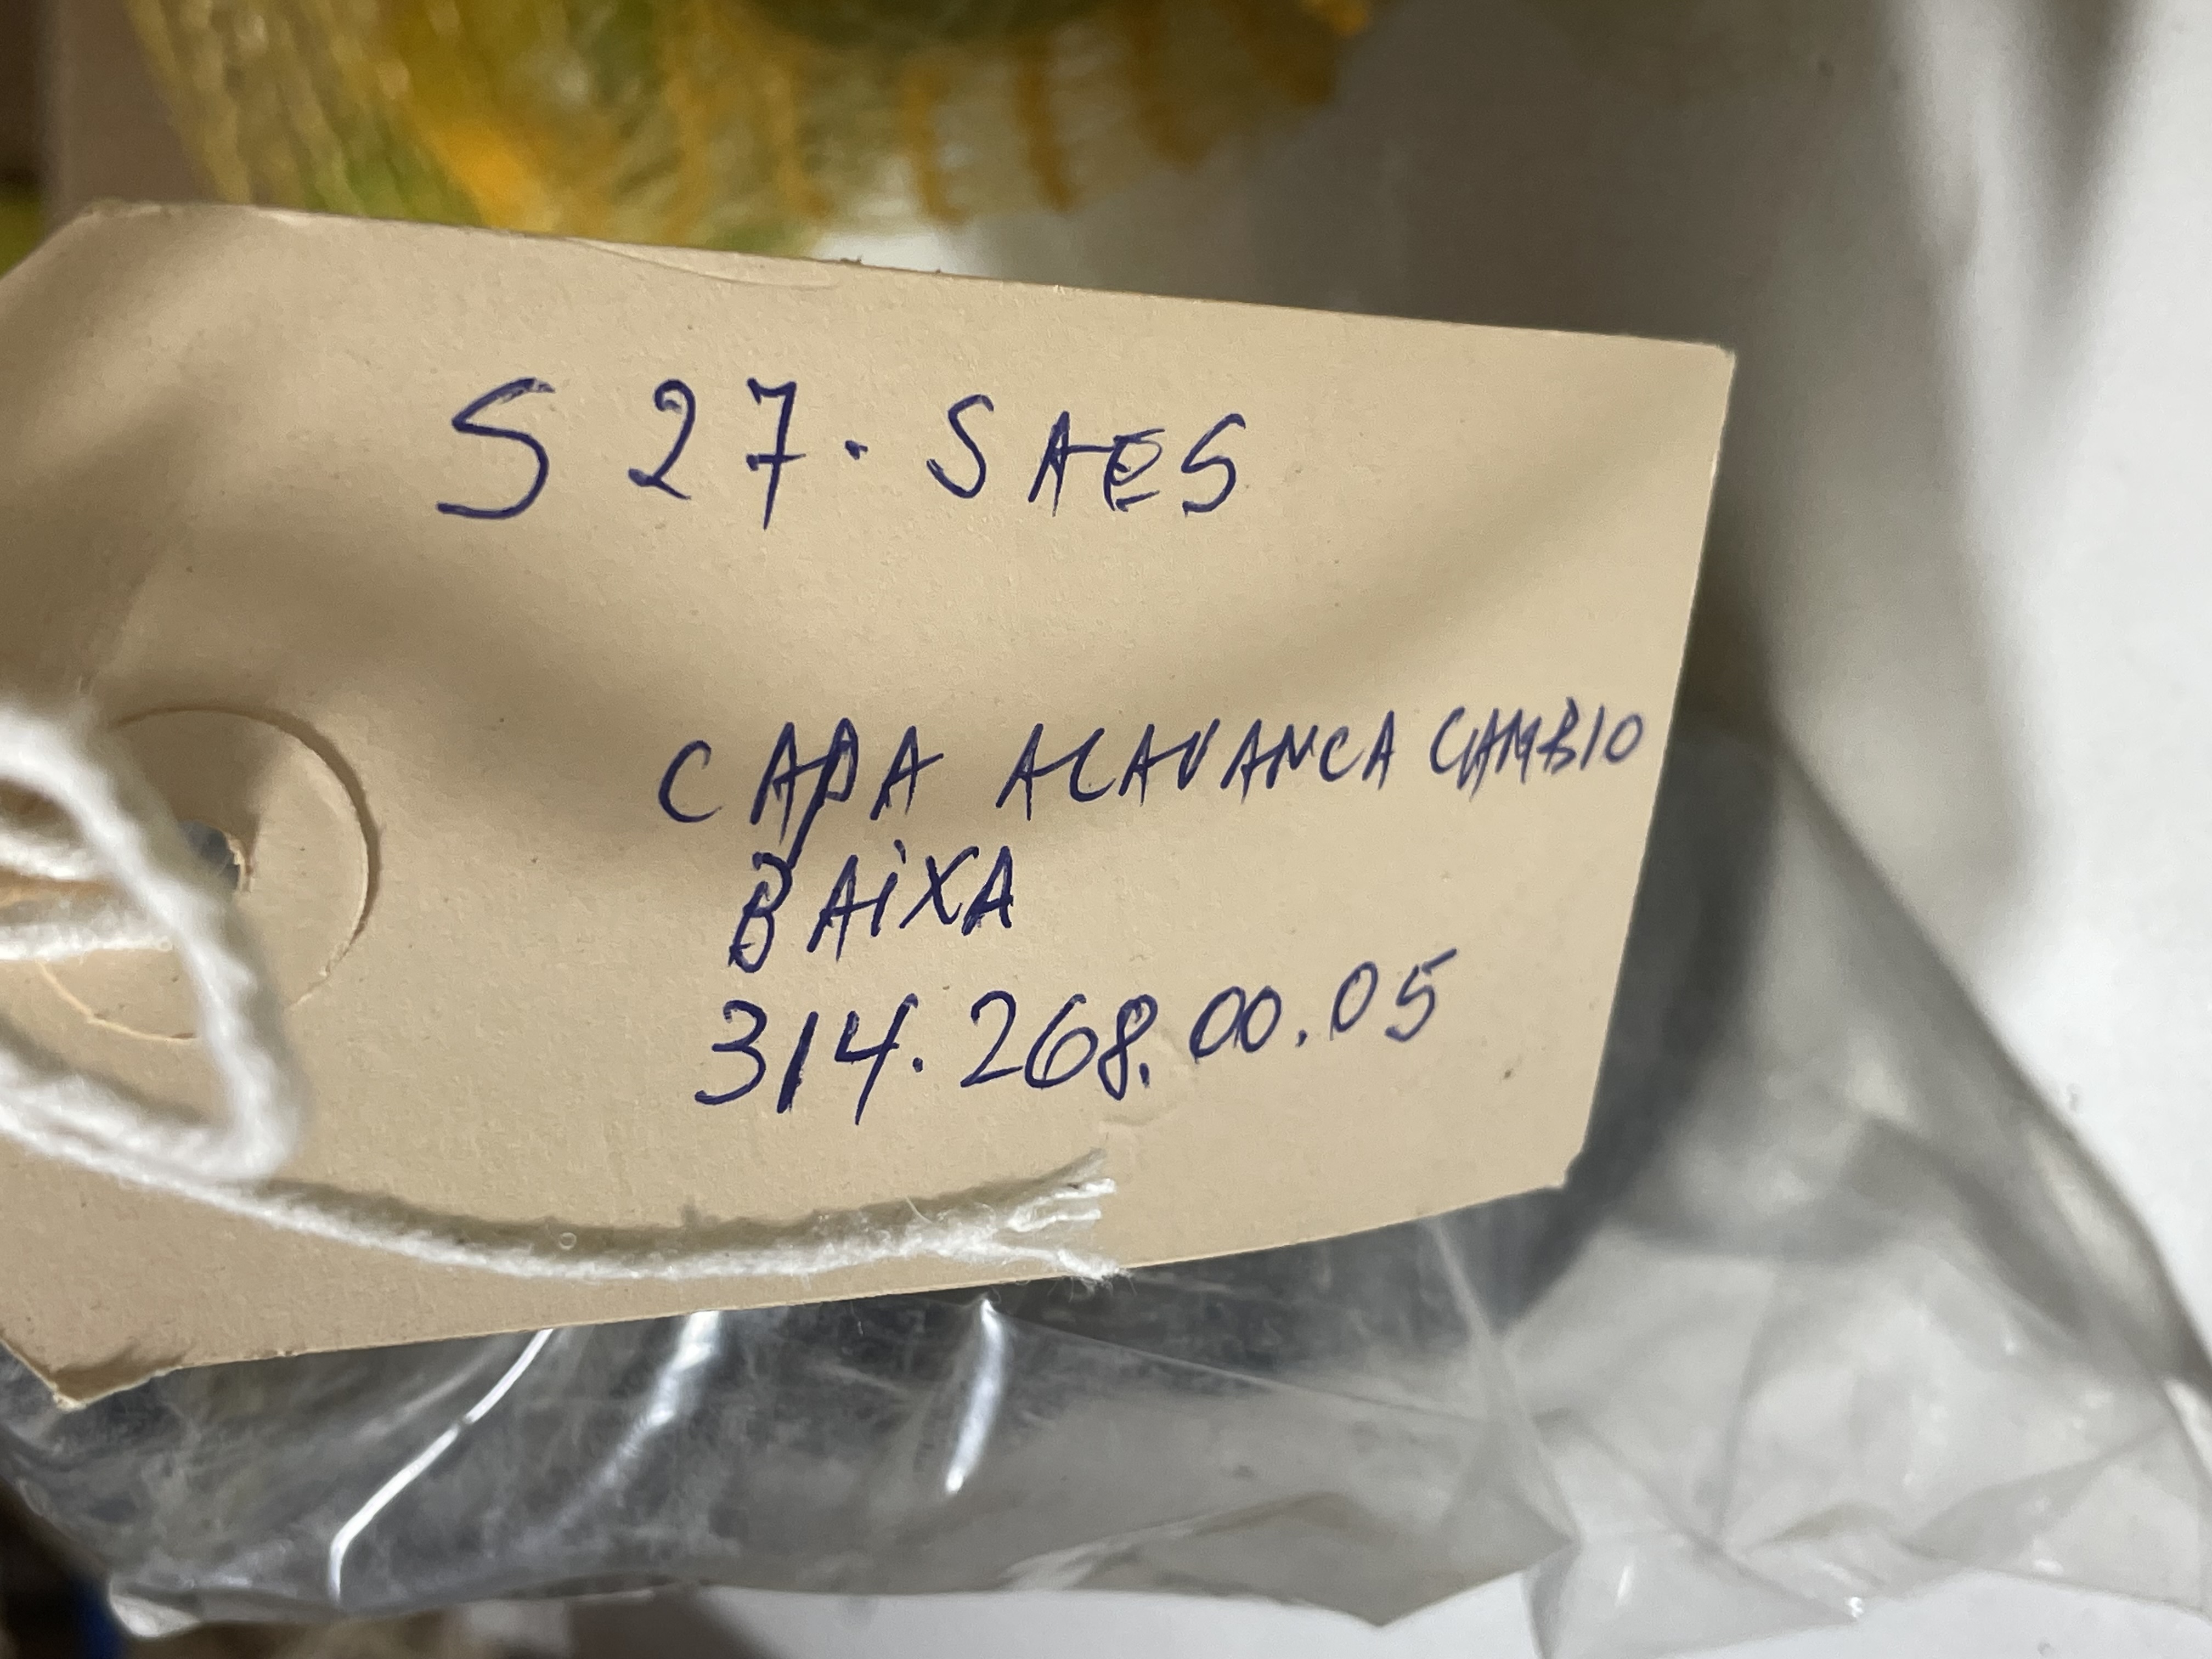 527.SAES
CAPA ALAVANCA CAMBIO
BAiXA
314.268.00.05